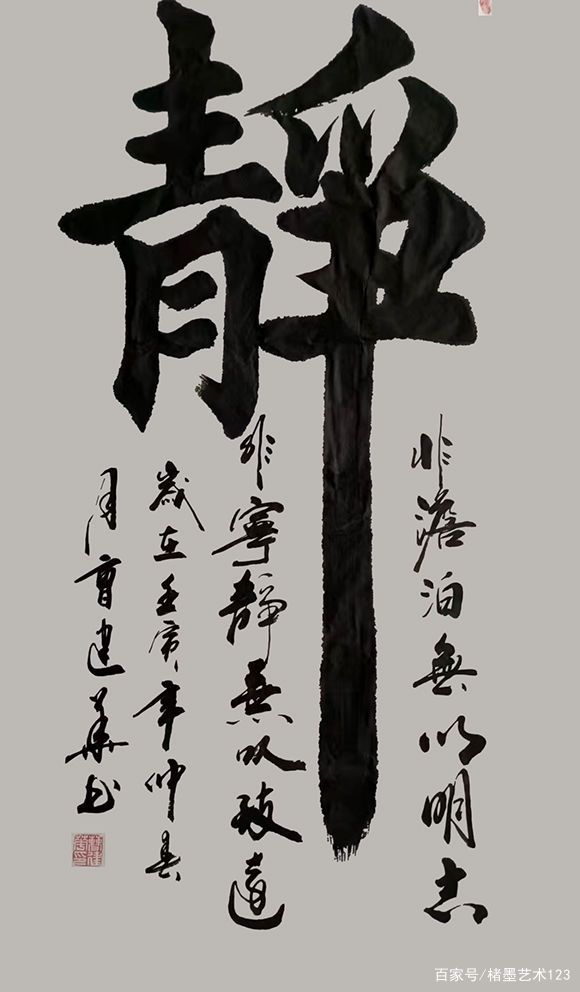 靜
非澹泊無以明志
非寧靜無以致遠
歲在壬寅年仲春
月曹建華书
百家号/楮墨艺术123